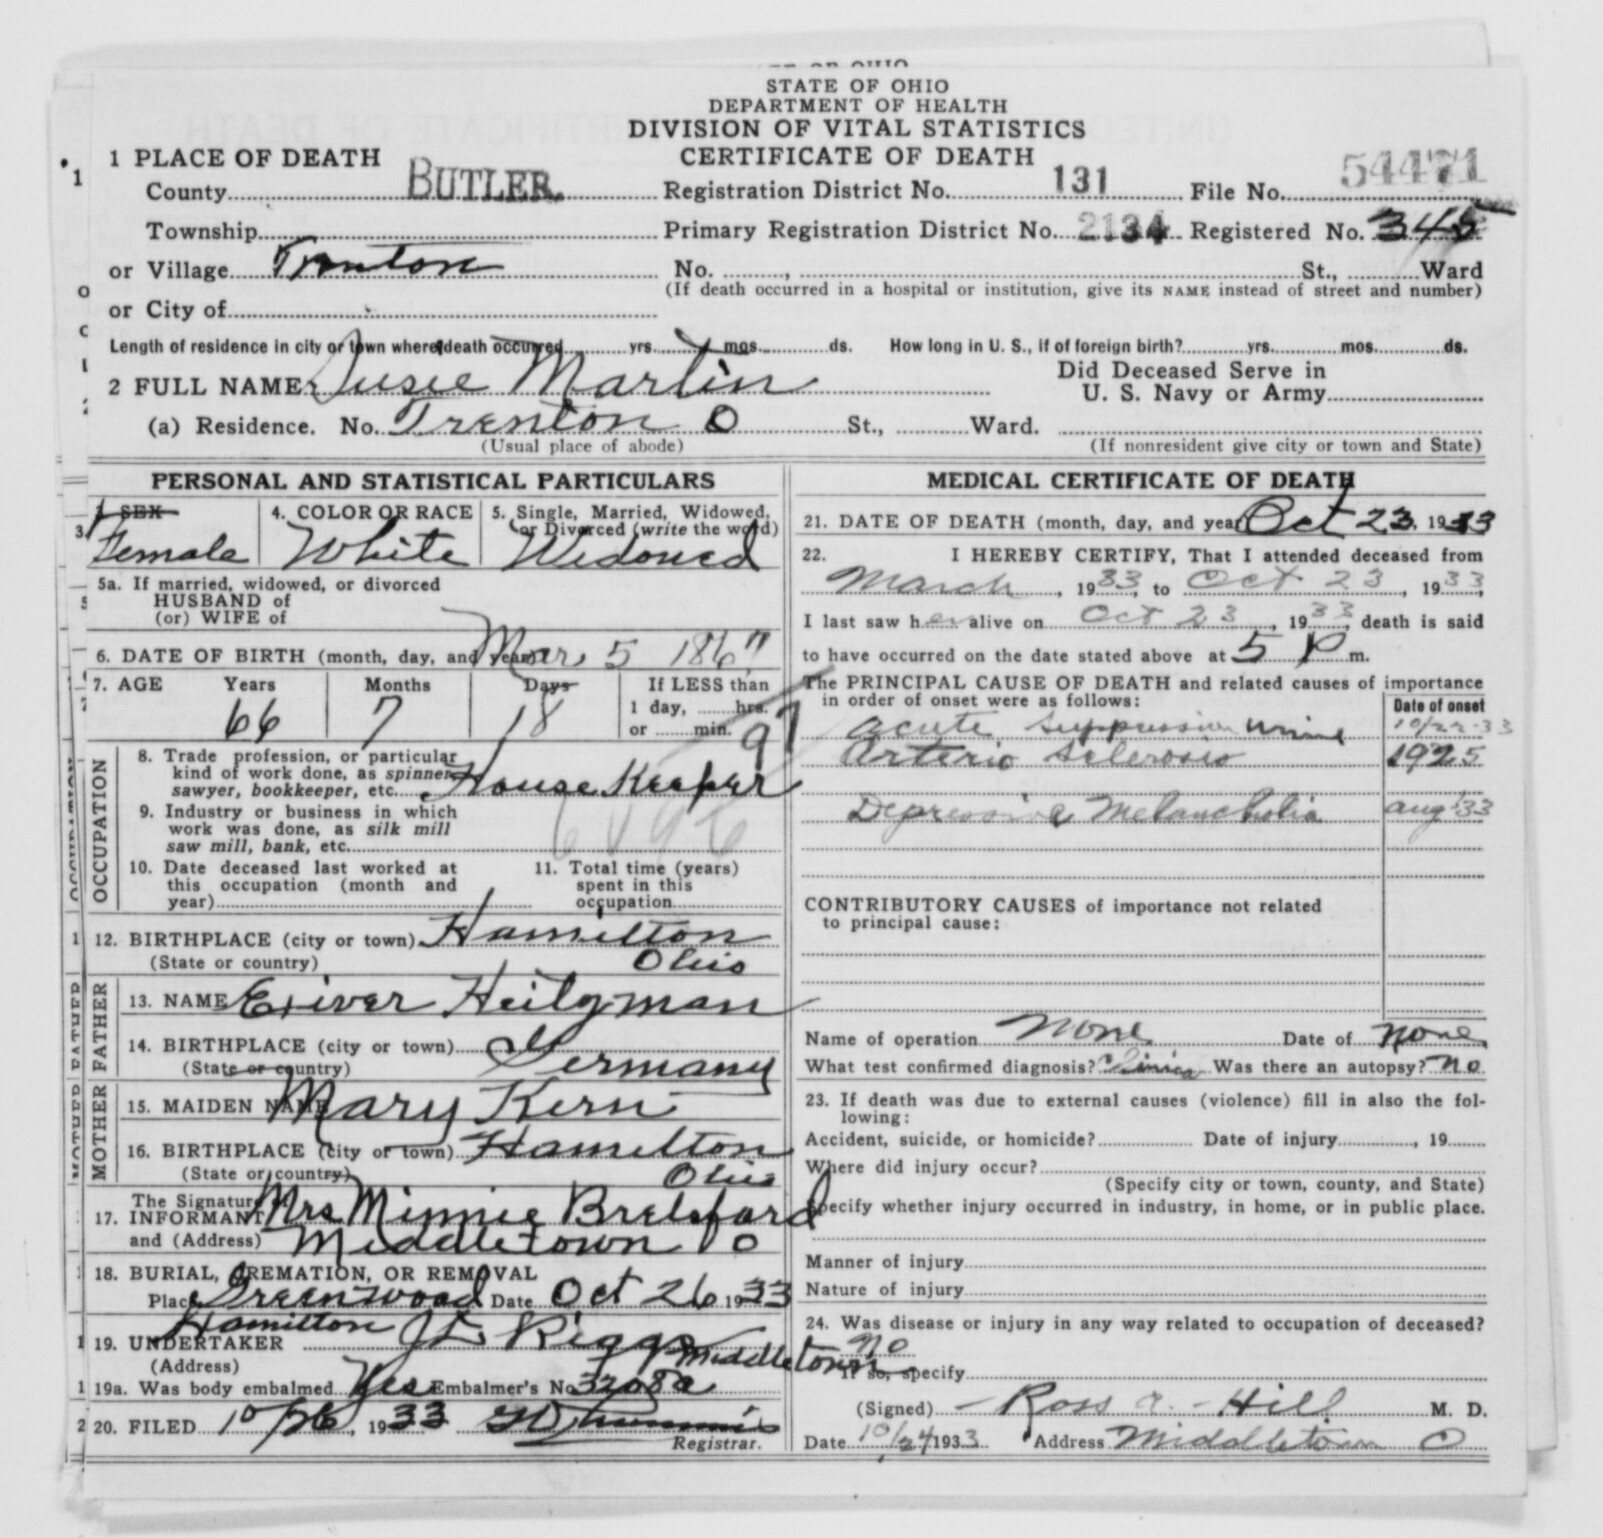 STATE OF OHIO
DEPARTMENT OF HEALTH
DIVISION OF VITAL STATISTICS
CERTIFICATE OF DEATH
1 PLACE OF DEATH
County BUTLER Registration District No. 131 File No. 54471
Township Primary Registration District No. 2134 Registered No. 345
or Village Trenton No. , St., Ward
(If death occurred in a hospital or institution, give its NAME instead of street and number)
or City of
Length of residence in city or town where death occurred yrs. mos. ds. How long in U. S., if of foreign birth? yrs. mos. ds.
2 FULL NAME Susie Martin Did Deceased Serve in U. S. Navy or Army
(a) Residence. No. Trenton O St., Ward.
(Usual place of abode) (If nonresident give city or town and State)
PERSONAL AND STATISTICAL PARTICULARS
3. SEX Female
4. COLOR OR RACE White
5. Single, Married, Widowed, or Divorced (write the word) Widowed
5a. If married, widowed, or divorced
HUSBAND of
(or) WIFE of
6. DATE OF BIRTH (month, day, and year) Mar 5 1867
7. AGE Years Months Days If LESS than
66 7 18 1 day, hrs.
or min.
97
OCCUPATION
8. Trade profession, or particular
kind of work done, as spinner
sawyer, bookkeeper, etc. House Keeper
9. Industry or business in which
work was done, as silk mill
saw mill, bank, etc.
10. Date deceased last worked at
this occupation (month and
year)
11. Total time (years)
spent in this
occupation
12. BIRTHPLACE (city or town) Hamilton
(State or country) Ohio
FATHER
13. NAME Heitgman
14. BIRTHPLACE (city or town)
(State or country) Germany
MOTHER
15. MAIDEN NAME Mary Kern
16. BIRTHPLACE (city or town) Hamilton
(State or country) Ohio
The Signature
17. INFORMANT Mrs Minnie Brelsford
and (Address) Middletown O
18. BURIAL, CREMATION, OR REMOVAL
Place Greenwood Date Oct 26 1933
Hamilton
19. UNDERTAKER Riggs
(Address) Middletown
19a. Was body embalmed Yes Embalmer's No. 3208a
20. FILED 10/26, 1933
Registrar.
MEDICAL CERTIFICATE OF DEATH
21. DATE OF DEATH (month, day, and year) Oct 23, 1933
22. I HEREBY CERTIFY, That I attended deceased from
March, 1933, to Oct 23, 1933,
I last saw her alive on Oct 23, 1933, death is said
to have occurred on the date stated above at 5 P m.
The PRINCIPAL CAUSE OF DEATH and related causes of importance
in order of onset were as follows: Date of onset
acute suppression urine 10/22-33
Arterio Sclerosis 1925
Depressive Melancholia aug '33
CONTRIBUTORY CAUSES of importance not related
to principal cause:
Name of operation None Date of None
What test confirmed diagnosis? Clinical Was there an autopsy? no
23. If death was due to external causes (violence) fill in also the fol-
lowing:
Accident, suicide, or homicide? Date of injury , 19
Where did injury occur?
(Specify city or town, county, and State)
Specify whether injury occurred in industry, in home, or in public place.
Manner of injury
Nature of injury
24. Was disease or injury in any way related to occupation of deceased?
no
If so, specify
(Signed) Ross A. Hill M. D.
Date 10/24 1933 Address Middletown O